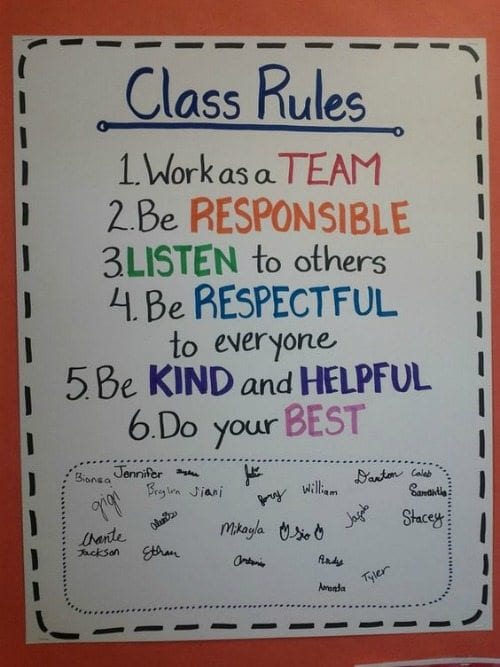 Class Rules
1. Work as a TEAM
2. Be RESPONSIBLE
3. LISTEN to others
4. Be RESPECTFUL
to everyone
5. Be KIND and HELPFUL
6. Do your BEST
Bianca Jennifer Danton Caleb
gigi Jiani William Samantha
Mikayla Jacob Stacey
Chante
Jackson Ethan Antonio Andy
Amanda Tyler